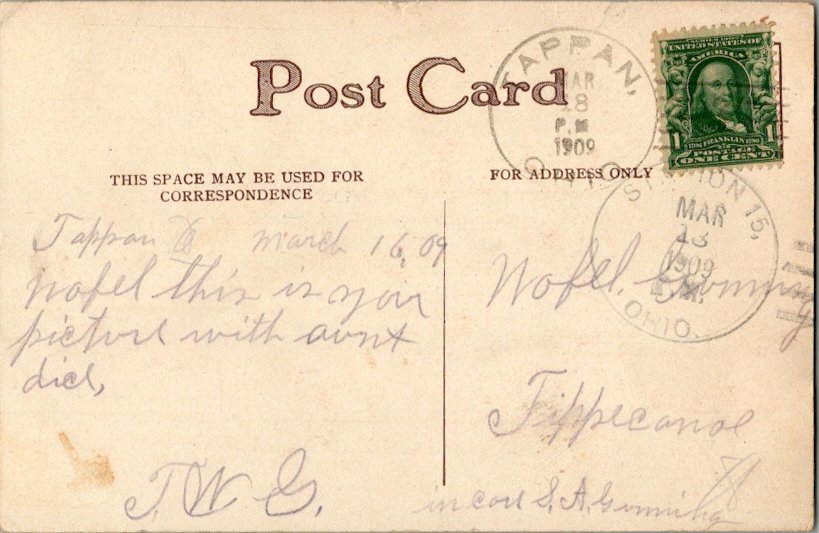 Post Card
THIS SPACE MAY BE USED FOR
CORRESPONDENCE
FOR ADDRESS ONLY
TAPPAN,
MAR
18
P.M
1909
OHIO
UNITED STATES OF
AMERICA
1 FRANKLIN 1
POSTAGE
ONE CENT
STATION 15,
MAR
18
1909
P.M.
OHIO.
Tappan O March 16, 09
Wofel this is your
picture with aunt
dicl,
T. W. G.
Wofel. Gunning
Tippecanoe
O
in care S. A. Gunning